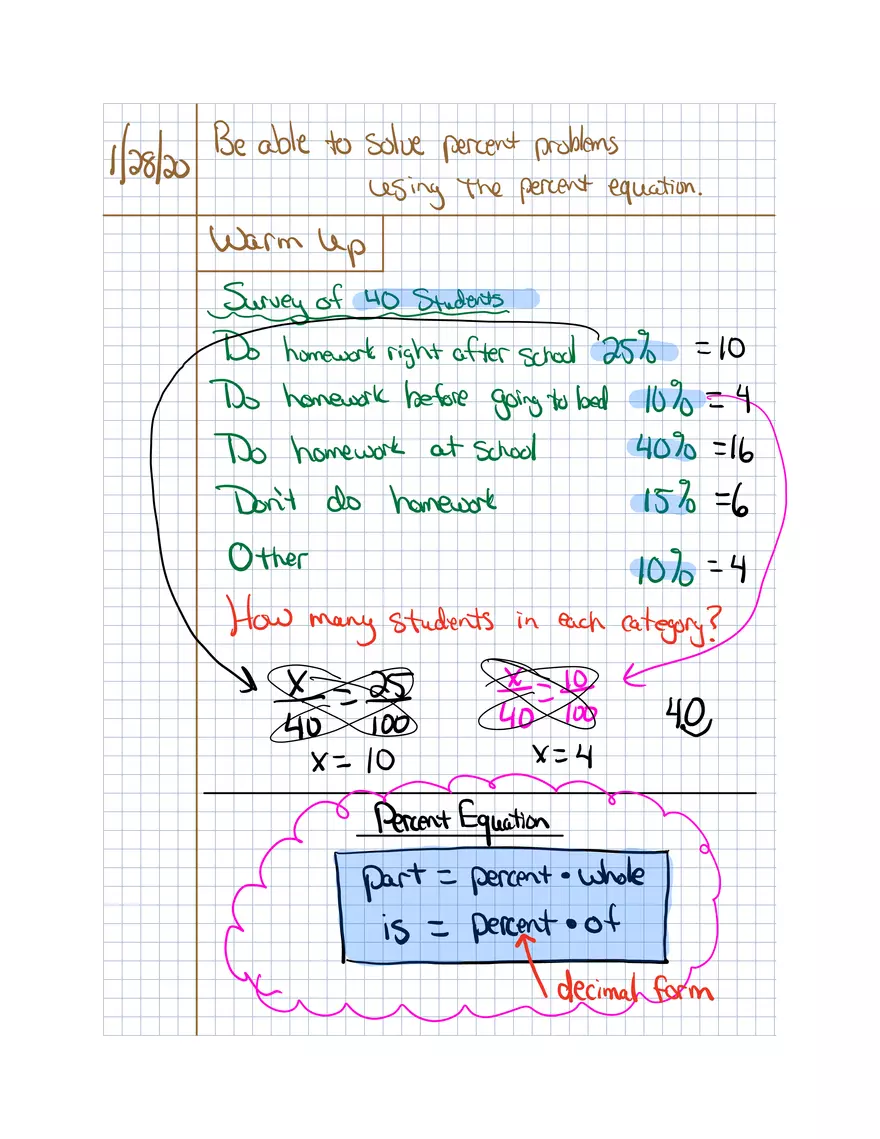 1/28/20
Be able to solve percent problems
using the percent equation.
Warm Up
Survey of 40 Students
Do homework right after school 25% = 10
Do homework before going to bed 10% = 4
Do homework at school 40% = 16
Don't do homework 15% = 6
Other 10% = 4
How many students in each category?
x/40 = 25/100 x/40 = 10/100 40
x = 10 x = 4
Percent Equation
part = percent • whole
is = percent • of
decimal form